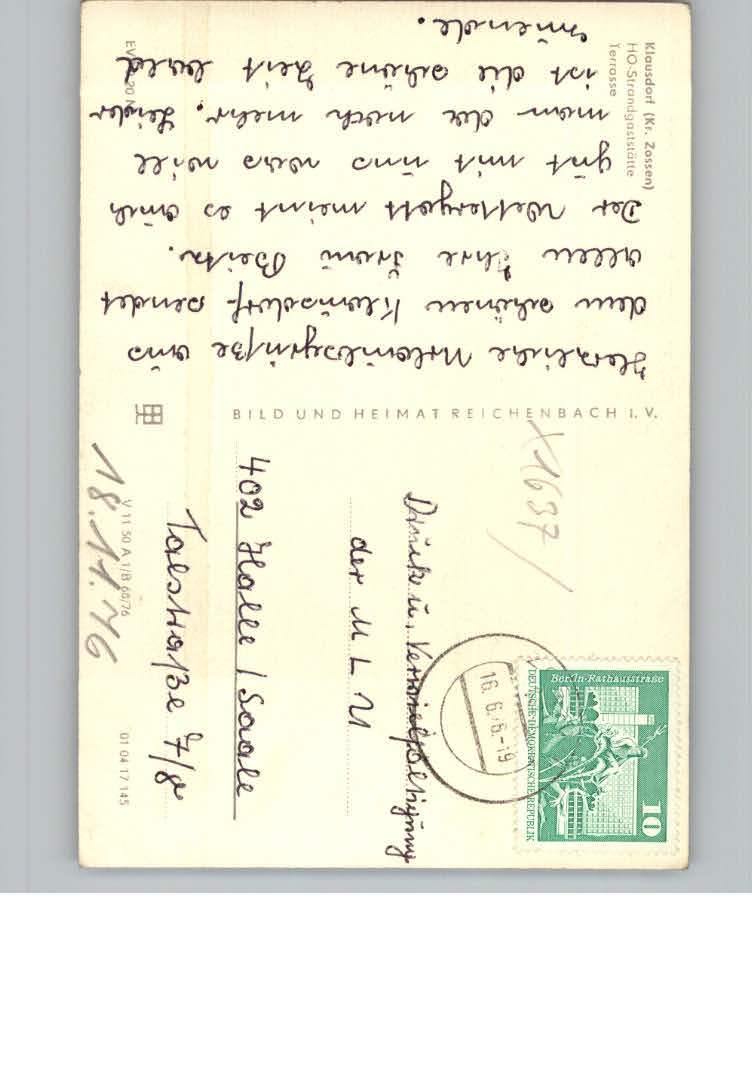 Klausdorf (Kr. Zossen)
HO-Strandgaststätte
Terrasse
Herzliche Urlaubsgrüße aus
dem schönen Klausdorf sendet
allen Ihre Frau Beitz.
Der Wettergott meint es auch
gut mit uns was will
man da noch mehr. Leider
ist die schöne Zeit bald
zuende.
BILD UND HEIMAT REICHENBACH I. V.
V 11 50 A 1/B 68/76
01 04 17 145
X1637/
18.11.76
Druck u. Vervielfältigung
der M L U
402 Halle / Saale
Talstraße 7/8
16.6.76-19
Berlin-Rathausstraße
DEUTSCHE DEMOKRATISCHE REPUBLIK
10